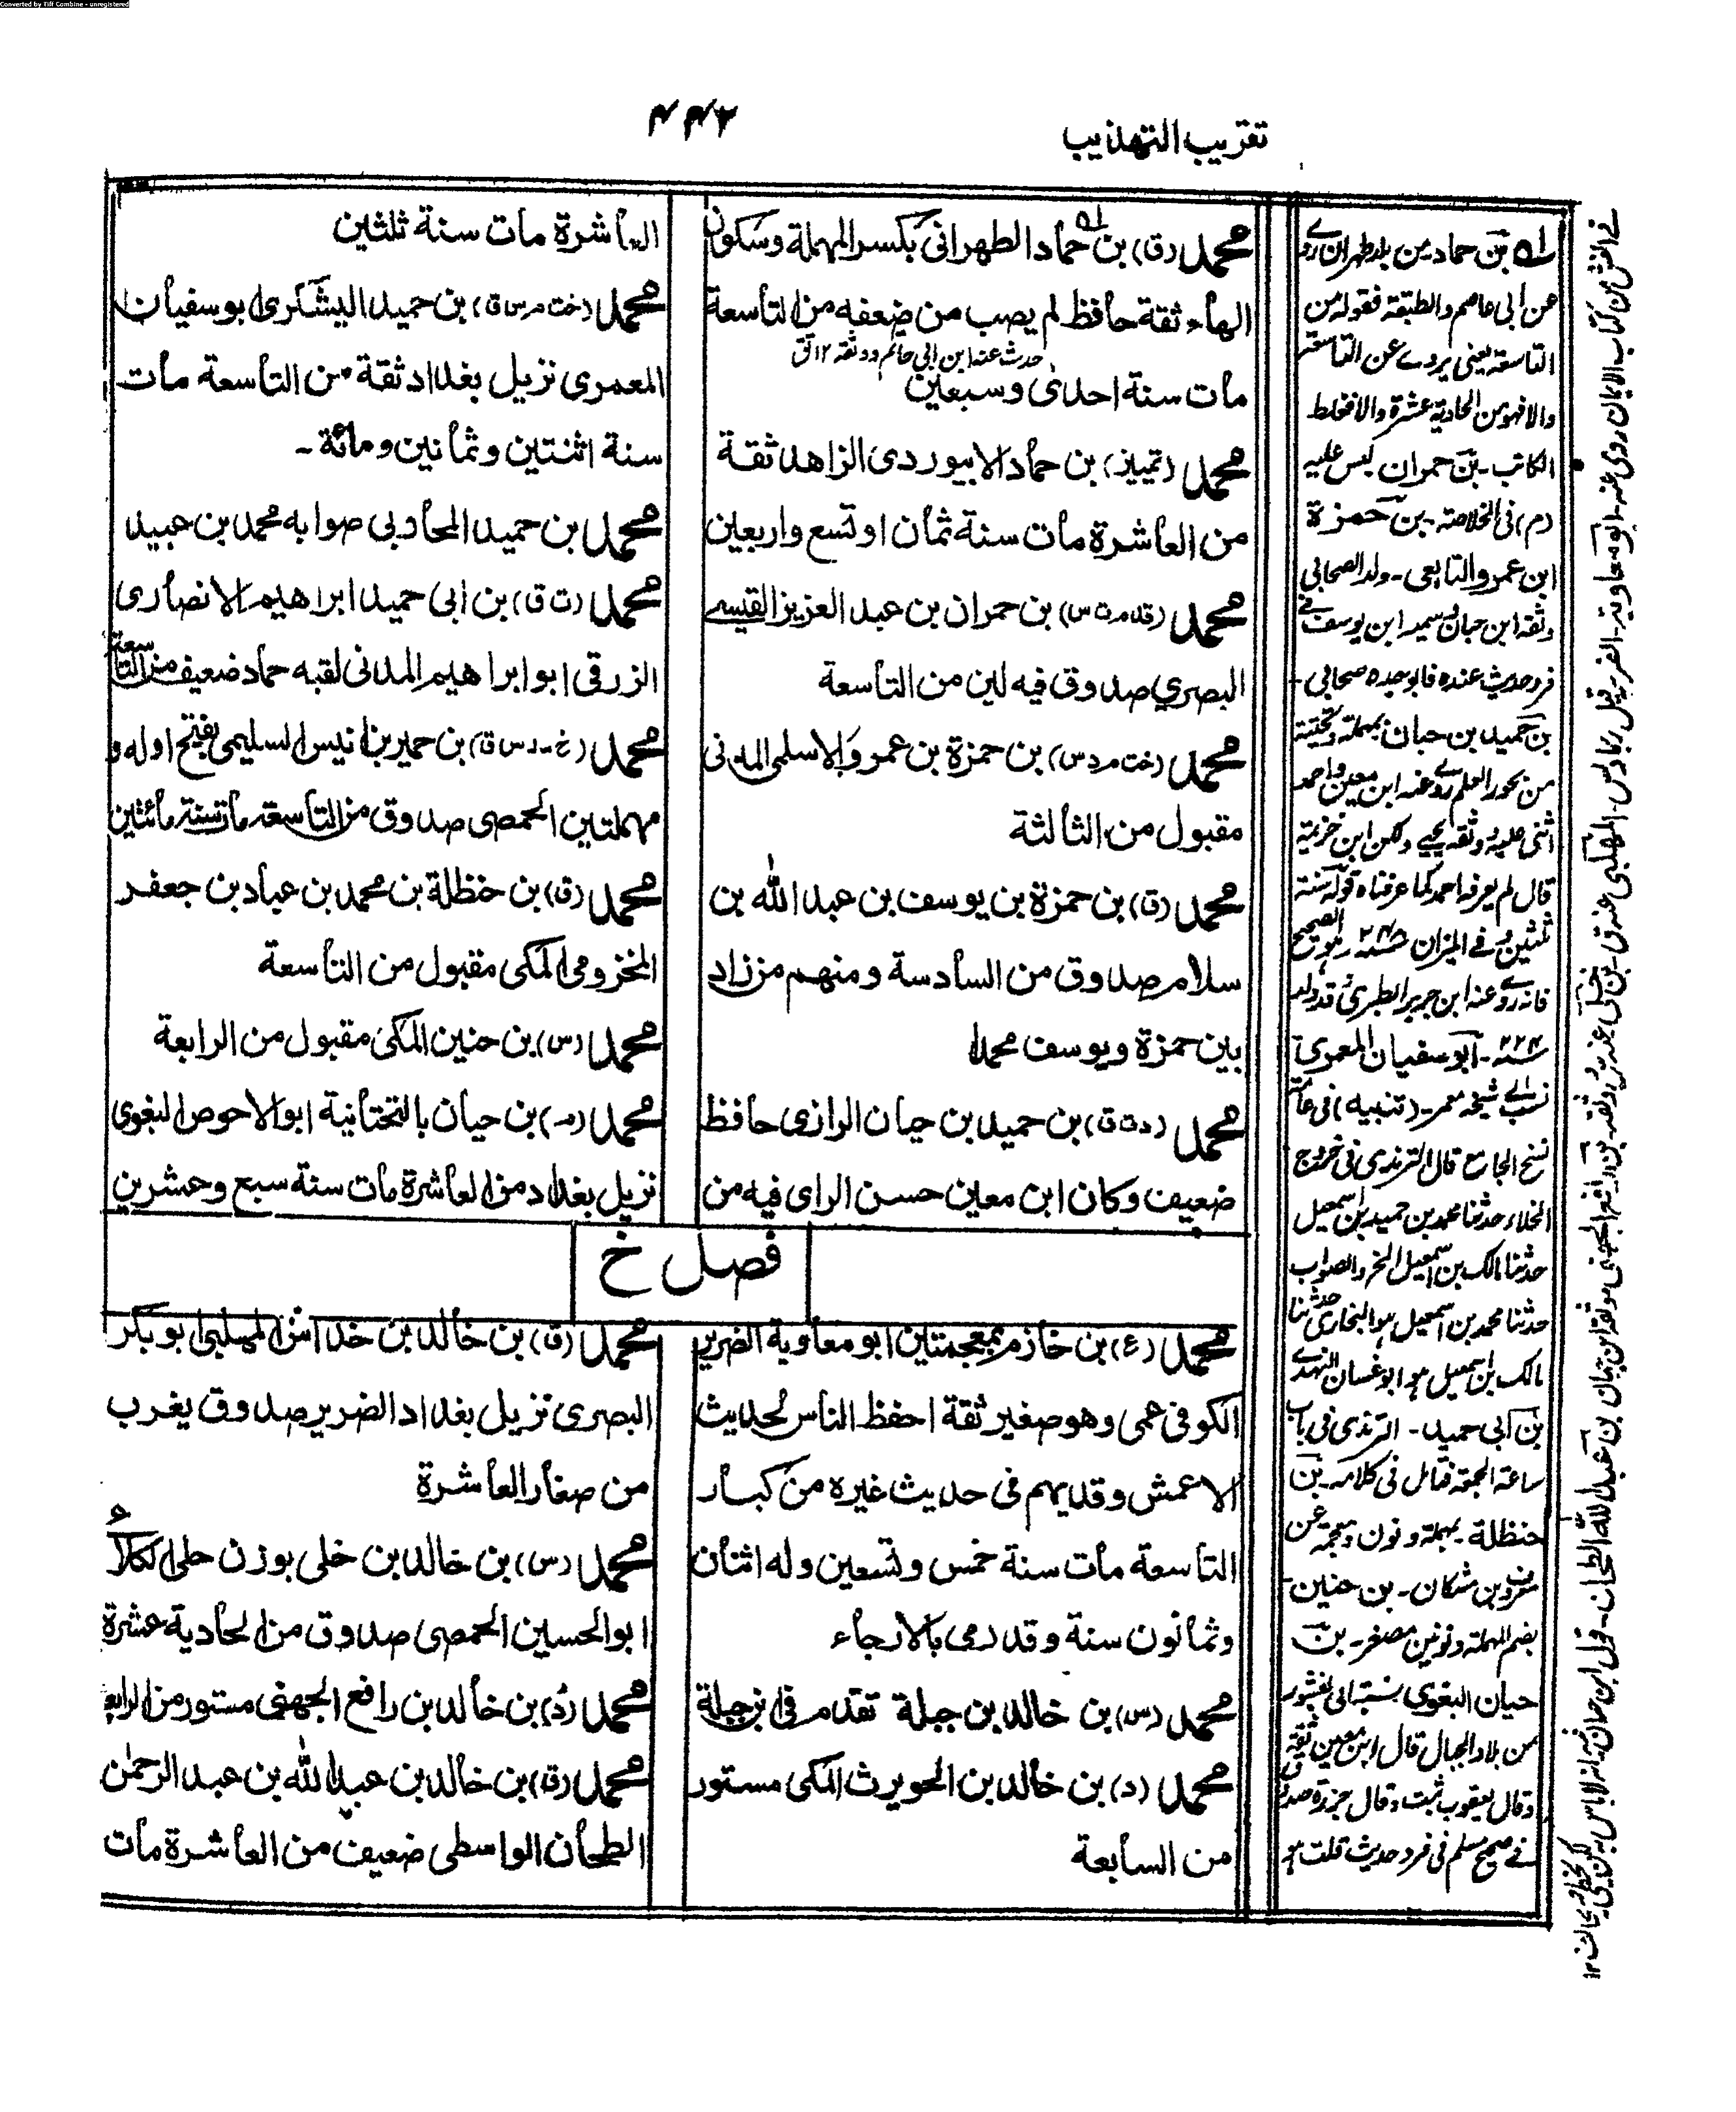 Converted by Tiff Combine - unregistered
تقريب التهذيب
۴۴۲
محمد (ق) بن حماد الطهرانى بكسر المهملة وسكون
الهاء ثقة حافظ لم يصب من ضعفه من التاسعة
حدث عنه ابن ابى حاتم ووثقه ۱۲
مات سنة احدى وسبعين
محمد (تمييز) بن حماد الابيوردى الزاهد ثقة
من العاشرة مات سنة ثمان او تسع واربعين
محمد (قد م ت س) بن حمران بن عبد العزيز القيسے
البصري صدوق فيه لين من التاسعة
محمد (خت م د س) بن حمزة بن عمرو الاسلمى المدنى
مقبول من الثالثة
محمد (ق) بن حمزة بن يوسف بن عبد الله بن
سلام صدوق من السادسة ومنهم من زاد
بين حمزة ويوسف محمدا
محمد (د ت ق) بن حميد بن حيان الرازى حافظ
ضعيف وكان ابن معين حسن الراى فيه من
العاشرة مات سنة ثلثين
محمد (خت م س ق) بن حميد اليشكرى ابو سفيان
المعمرى نزيل بغداد ثقة من التاسعة مات
سنة اثنتين وثمانين ومائة ـ
محمد بن حميد المحاربى صوابه محمد بن عبيد
محمد (ت ق) بن ابى حميد ابراهيم الانصارى
الزرقى ابو ابراهيم المدنى لقبه حماد ضعيف من التاسعة
محمد (خ ـ د س ق) بن حمير بن انيس السليمى بفتح اوله و
مهملتين الحمصى صدوق من التاسعة مات سنة مائتين
محمد (ق) بن حنظلة بن محمد بن عباد بن جعفر
المخزومى المكى مقبول من التاسعة
محمد (س) بن حنين المكى مقبول من الرابعة
محمد (م) بن حيان بالتحتانية ابو الاحوص البغوى
نزيل بغداد من العاشرة مات سنة سبع وعشرين
فصل خ
محمد (ع) بن خازم بمعجمتين ابو معاوية الضرير
الكوفى عمى وهو صغير ثقة احفظ الناس لحديث
الاعمش وقد يهم فى حديث غيره من كبار
التاسعة مات سنة خمس وتسعين وله اثنان
وثمانون سنة وقد رمى بالارجاء
محمد (س) بن خالد بن جبلة تقدم فى ابن جبلة
محمد (د) بن خالد بن الحويرث المكى مستور
من السابعة
محمد (ق) بن خالد بن خداش المهلبى ابو بكر
البصرى نزيل بغداد الضرير صدوق يغرب
من صغار العاشرة
محمد (س) بن خالد بن خلى بوزن على الكلاعى
ابو الحسين الحمصى صدوق من الحادية عشرة
محمد (د) بن خالد بن رافع الجهنى مستور من الرابعة
محمد (ق) بن خالد بن عبد الله بن عبد الرحمن
الطحان الواسطى ضعيف من العاشرة مات
بن حماد من بلد طهران رے
عن ابى عاصم والطبقة فقوله من
التاسعة يعنى يروے عن التاسعة
والا فهو من الحادية عشرة والا فغلط
الكاتب ـ بن حمران ليس عليه
(م) فى الخلاصة ـ بن حمزة
ابن عمرو التابعى ـ ولد الصحابى
وثقه ابن حبان
فرد حديث عنده فابوجده صحابى ـ
بن حميد بن حبان بمهملة وتحتية
من بحور العلم روے عنه ابن معين واحمد
اثنى عليه وثقه يحيے ولكن ابن خزيمة
قال لم يعرفه احمد كما عرفناه قوله سنة
ثلثين وفے الميزان سنة ۲۴۸ وهو الصحيح
فانه روے عنه ابن جرير الطبرى قد ولد
سنة ۲۲۴ ـ ابو سفيان المعمرى
نسب الى شيخه معمر ـ (تنبيه) فى عامة
نسخ الجامع قال الترمذى فى خروج
الخلاء حدثنا محمد بن حميد بن اسمعيل
حدثنا مالك بن اسمعيل الخ والصواب
حدثنا محمد بن اسمعيل هو البخارى حدثنا
مالك بن اسمعيل هو ابو غسان النهدے
بن ابى حميد ـ الترمذى فى باب
ساعة الجمعة فتامل فى كلامه ـ بن
حنظلة ـ بمهملة ونون ومعجمة عن
معروف بن مشكان ـ بن حنين ـ
بضم المهملة ونونين مصغر ـ بن
حيان البغوى نسبة الى بغشور
من بلاد الجبال قال ابن معين ثقة
وقال يعقوب ثبت وقال جزرة صدوق
فے صحيح مسلم فى فرد حديث قلت هو